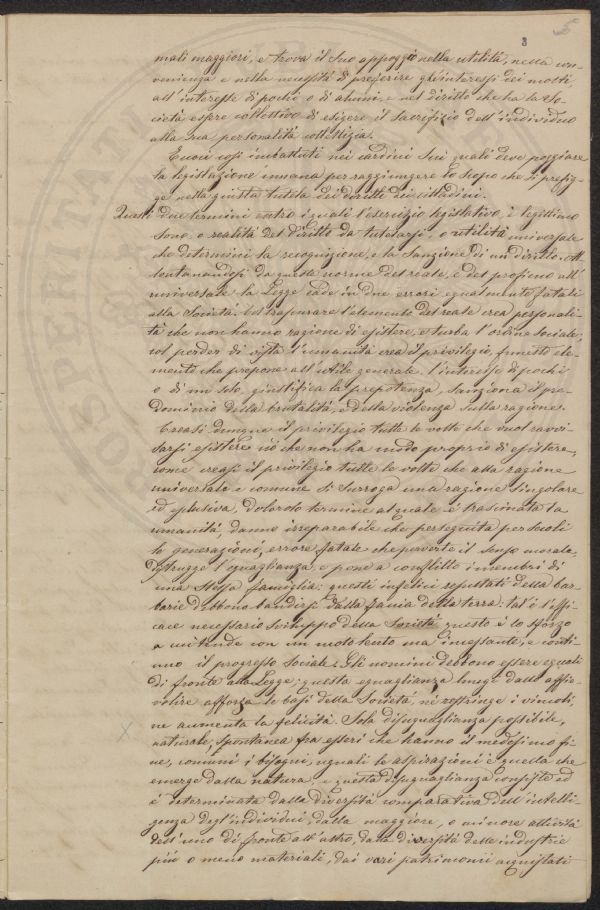 3 5
mali maggiori, e trova il suo appoggio nella utilità, nella con-
venienza e nella necessità di preferire gl'interessi dei molti,
all'interesse di pochi o di alcuni, e nel diritto che ha la So-
cietà essere collettivo di esigere il sacrifizio dell'individuo
alla sua personalità collettizia.
Eccoci così imbattuti nei cardini sui quali deve poggiare
la legislazione umana per raggiungere lo scopo che si prefig-
ge nella giusta tutela dei diritti dei cittadini.
Questi due termini entro i quali l'esercizio legislativo, è legittimo
sono, o realità del diritto da tutelarsi, o utilità universale
che determini la recognizione, e la sanzione di un diritto. Al-
lontanandosi da queste norme del reale, e del proficuo all'
universale la Legge cade in due errori egualmente fatali
alla Società. Col trapassare l'elemento del reale crea personali-
tà che non hanno ragione di esistere, e turba l'ordine sociale,
col perder di vista l'umanità crea il privilegio, funesto ele-
mento che propone all'utile generale, l'interesse di pochi
o di un solo, giustifica la prepotenza, sanziona il pre-
dominio della brutalità, e della violenza sulla ragione.
Creasi dunque il privilegio tutte le volte che vuol ravvi-
sarsi esistere ciò che non ha modo proprio di esistere,
come creasi il privilegio tutte le volte che alla ragione
universale e comune si surroga una ragione singolare
ed esclusiva, doloroso termine al quale è trascinata la
umanità, danno irreparabile che perseguita per secoli
le generazioni, errore fatale che perverte il senso morale,
distrugge l'eguaglianza, e pone a conflitto i membri di
una stessa famiglia: questi infelici reputati della bar-
barie debbono bandirsi dalla faccia della terra: tal'è l'effi-
cace necessario sviluppo della Società questo è lo sforzo
a cui tende con un moto lento ma incessante, e conti-
nuo il progresso sociale. Gli uomini debbono essere eguali
di fronte alla Legge; questa eguaglianza lungi dallo affie-
volire afforza le basi della Società, ne restringe i vincoli,
ne aumenta la felicità. Sola disuguaglianza possibile,
naturale, spontanea fra esseri che hanno il medesimo fi-
ne, comuni i bisogni, uguali le aspirazioni è quella che
emerge dalla natura, e questa disuguaglianza consiste ed
è determinata dalla diversità comparativa dell'intelli-
genza degl'individui, dalla maggiore, o minore attività
dell'uno di fronte all'altro, dalla diversità delle industrie
più o meno materiali, dai vari patrimonii acquistati